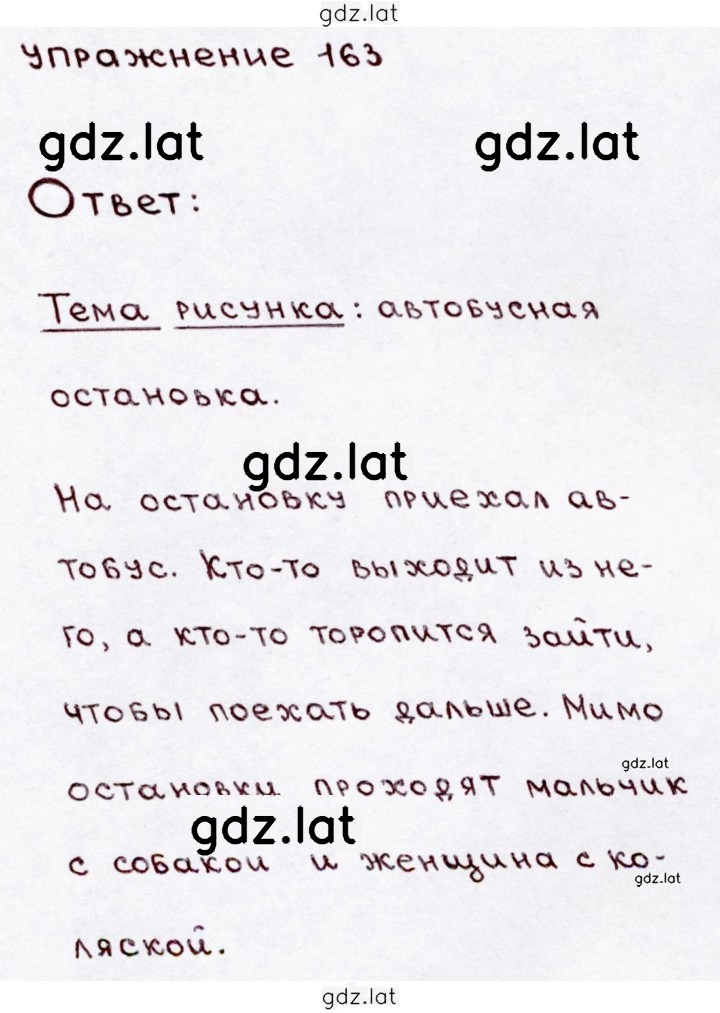 gdz.lat
упражнение 163
gdz.lat gdz.lat
Ответ:
Тема рисунка: автобусная
остановка.
gdz.lat
На остановку приехал ав-
тобус. Кто-то выходит из не-
го, а кто-то торопится зайти,
чтобы поехать дальше. Мимо
gdz.lat
остановки проходят мальчик
gdz.lat
с собакой и женщина с ко-
gdz.lat
ляской.
gdz.lat